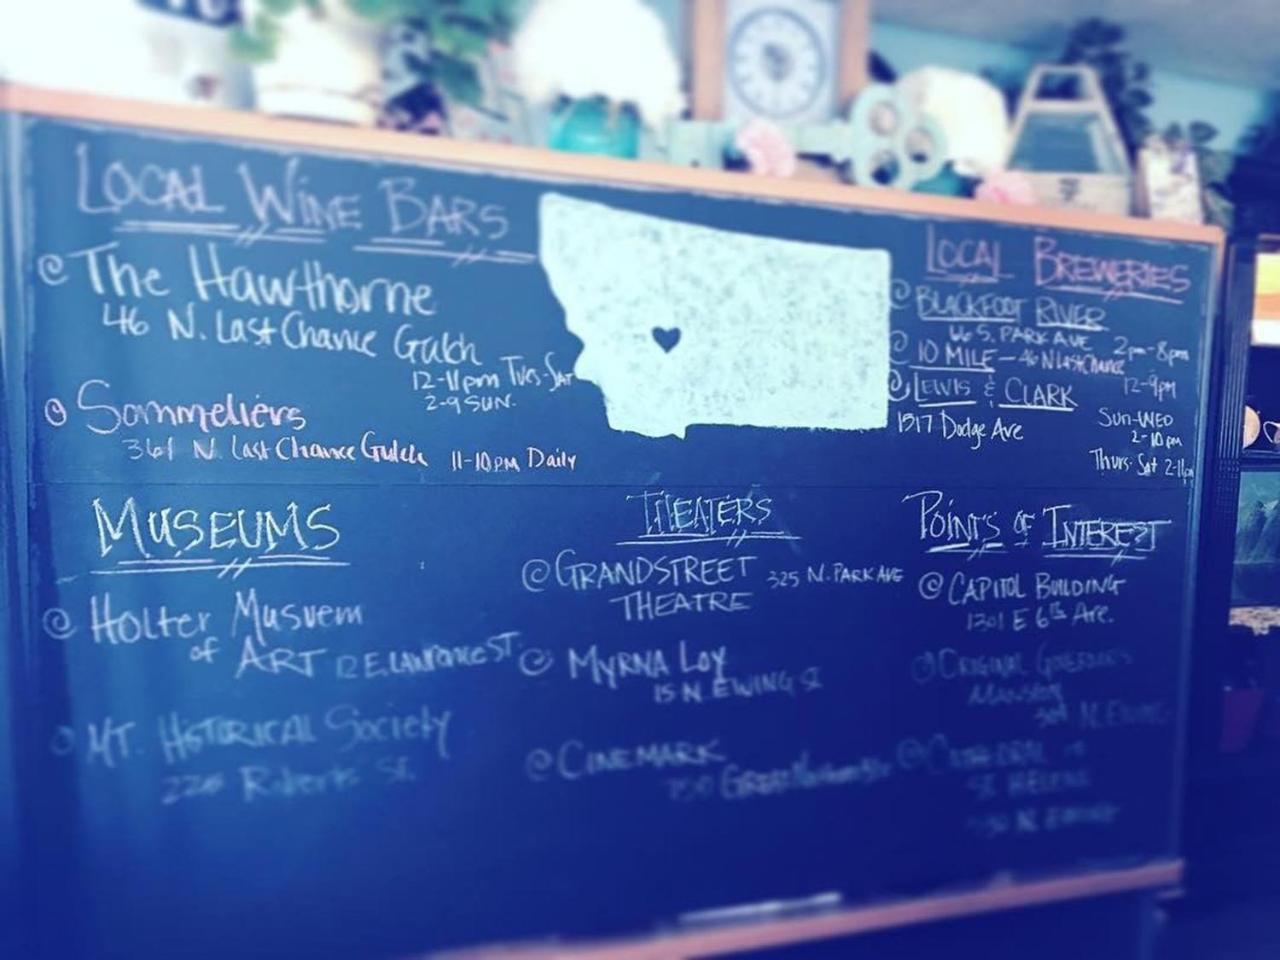 LOCAL WINE BARS
@ The Hawthorne
46 N. Last Chance Gulch
12-11pm Tues-Sat
2-9 SUN.
@ Sommeliers
361 N. Last Chance Gulch 11-10pm Daily
LOCAL BREWERIES
@ BLACKFOOT RIVER
66 S. PARK AVE 2pm-8pm
@ 10 MILE - 46 N Last Chance
12-9pm
@ LEWIS & CLARK
1517 Dodge Ave
Sun-WED
2-10pm
Thurs-Sat 2-11pm
MUSEUMS
@ Holter Musuem
of ART 12 E. LAWRENCE ST.
@ MT. Historical Society
225 Roberts St.
THEATERS
@ GRANDSTREET 325 N. PARK AVE
THEATRE
@ MYRNA LOY
15 N. EWING St
@ CINEMARK
750 Great Northern
POINTS OF INTEREST
@ CAPITOL BUILDING
1301 E 6th Ave.
@ Original Governors
Mansion
304 N. Ewing
@ CATHEDRAL
ST. HELENA
530 N. EWING